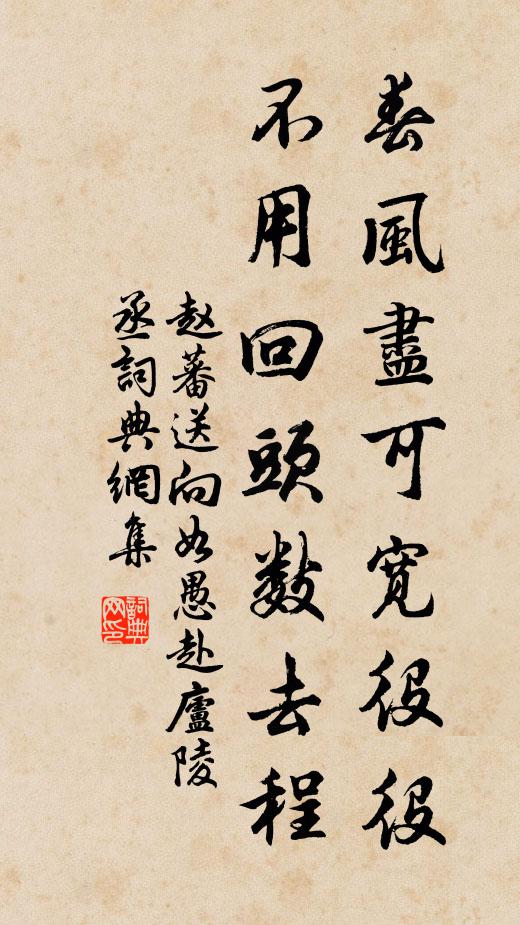 春風盡可寬役役
不用回頭數去程
赵蕃送向如愚赴廬陵
丞詞典網集
詞典网印